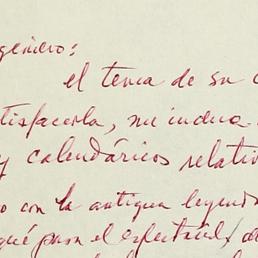 geniero:
el tema de su c
tisfacerla, me induce
y calendáricos relativ
o con la antigua leyenda
qué pasa el espectácul